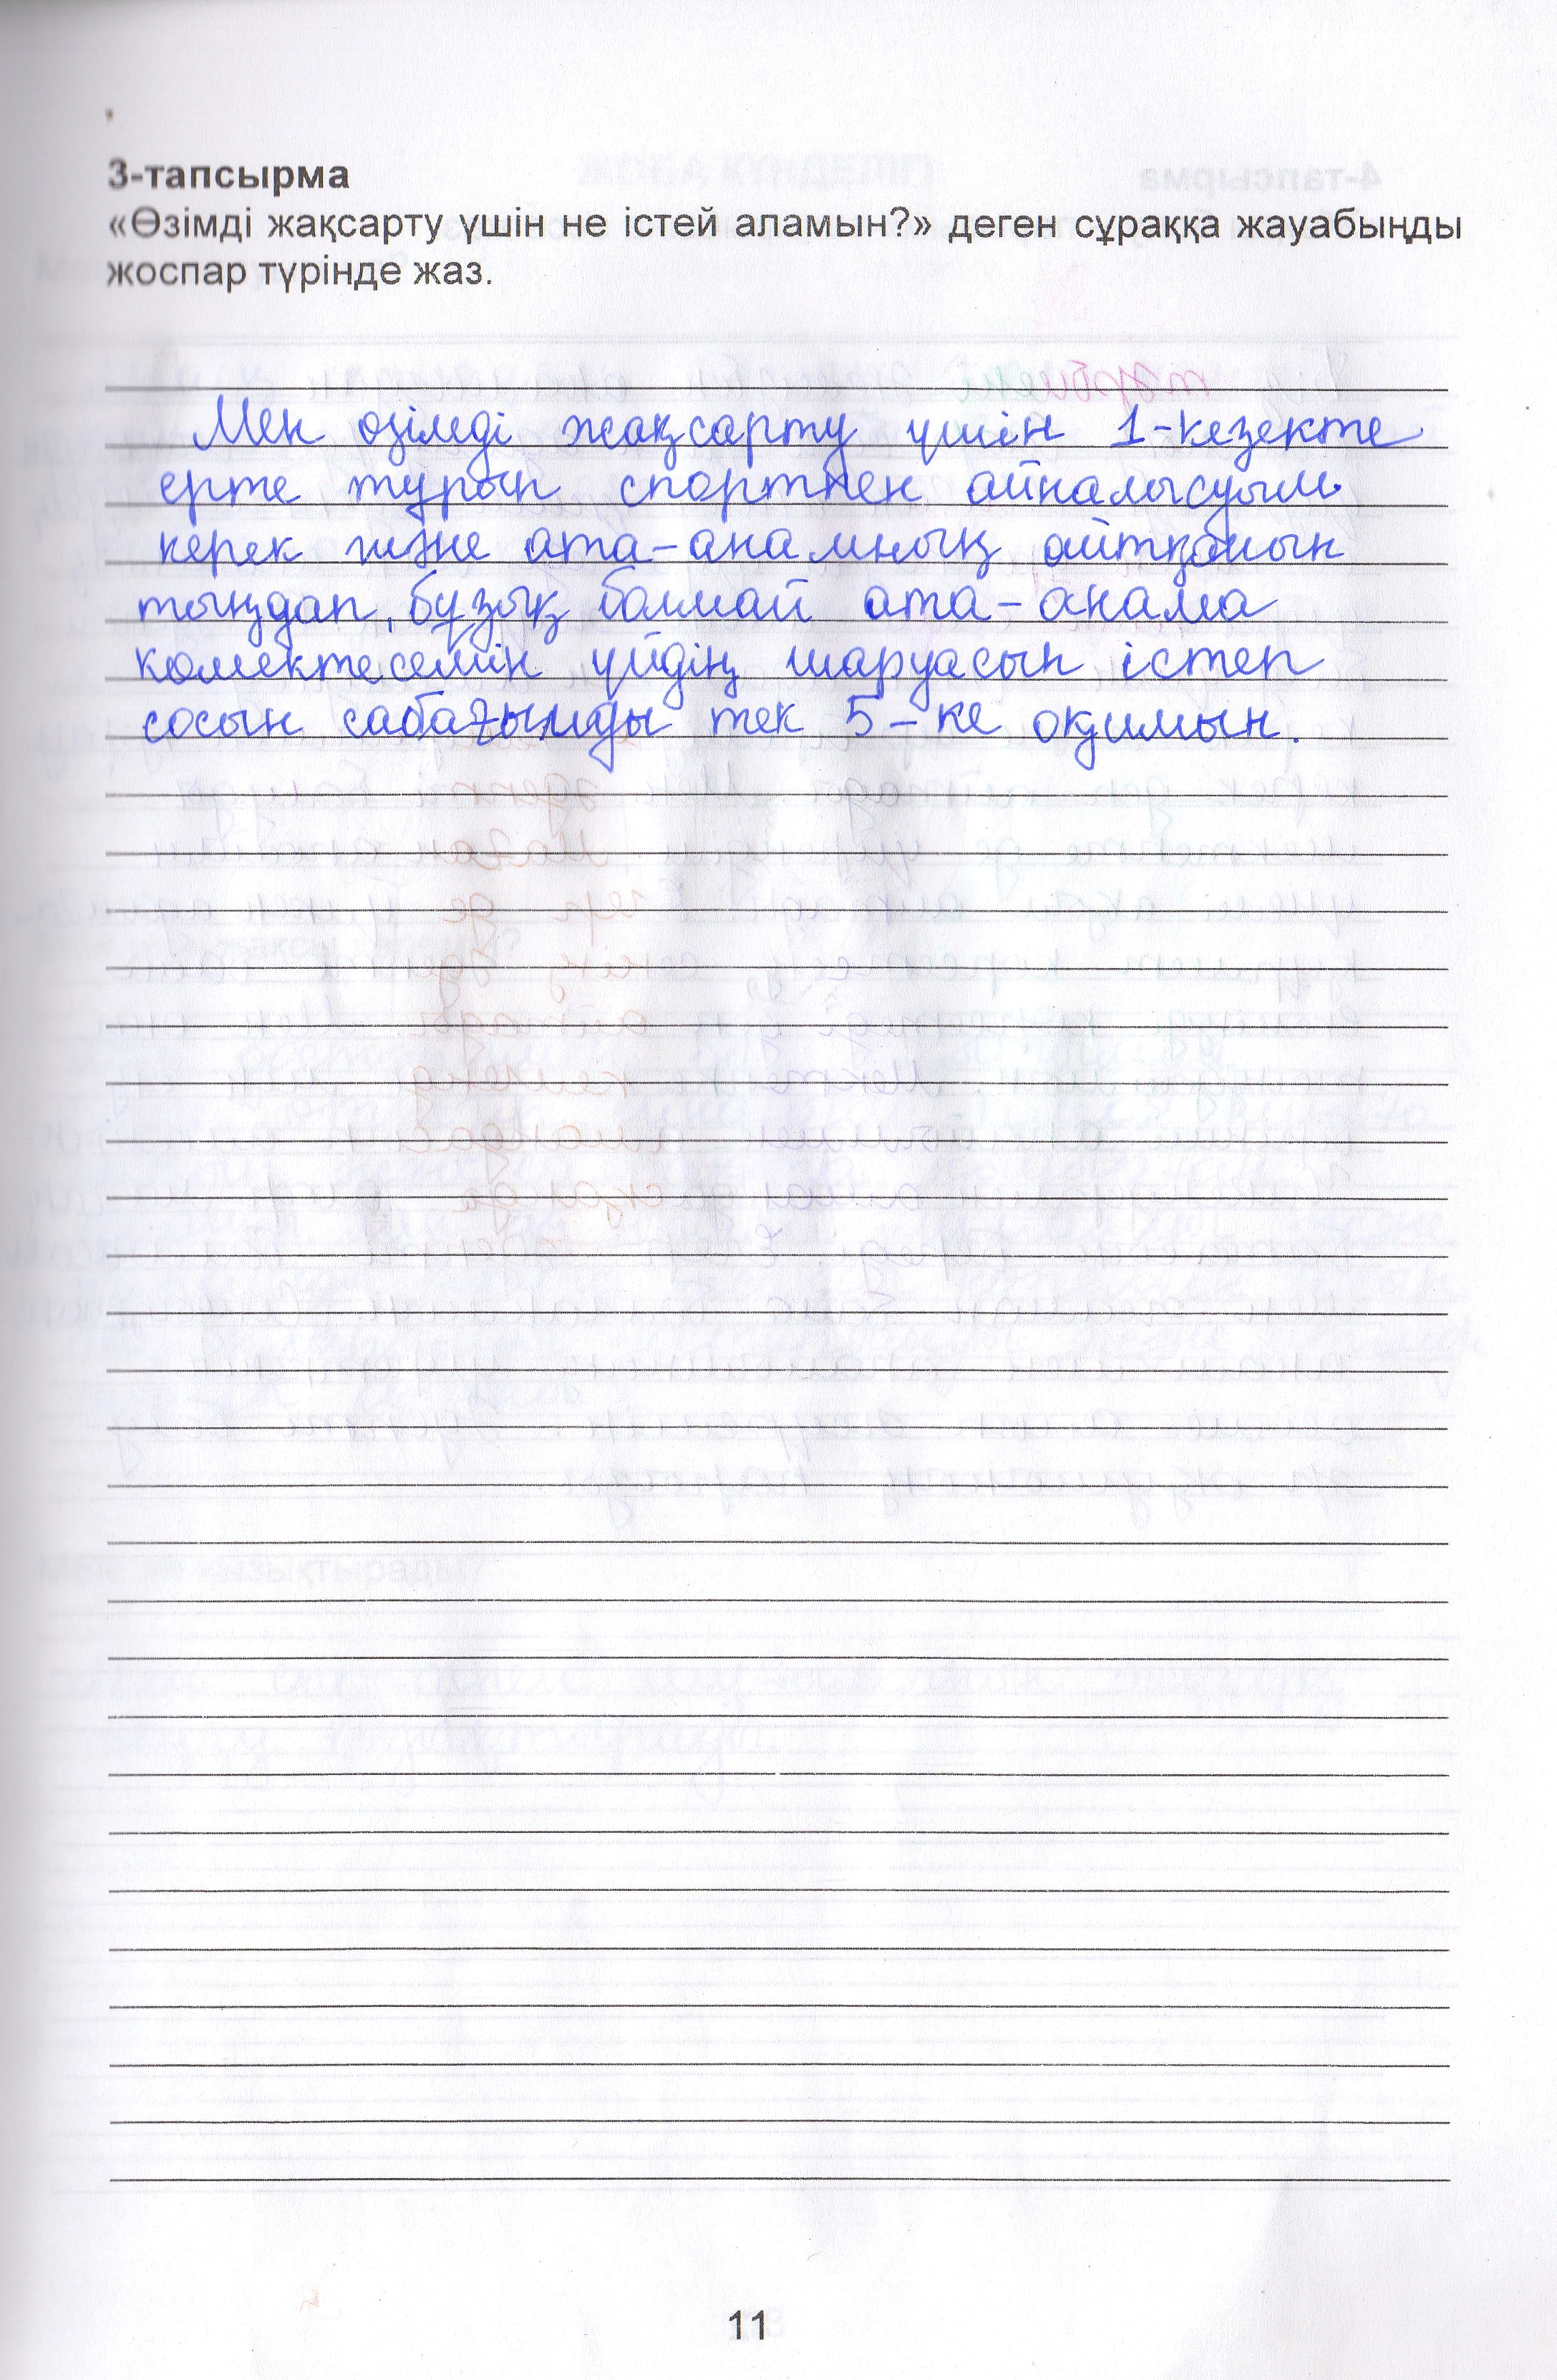 3-тапсырма
«Өзімді жақсарту үшін не істей аламын?» деген сұраққа жауабыңды
жоспар түрінде жаз.
Мен өзімді жақсарту үшін 1-кезекте
ерте тұрып спортпен айналысуым
керек және ата-анамның айтқанын
тыңдап, бұзық болмай ата-анама
көмектесемін үйдің шаруасын істеп
сосын сабағымды тек 5-ке оқимын.
11